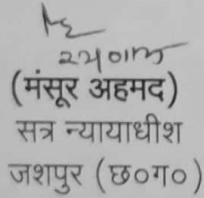 (मंसूर अहमद)
सत्र न्यायाधीश
जशपुर (छ०ग०)